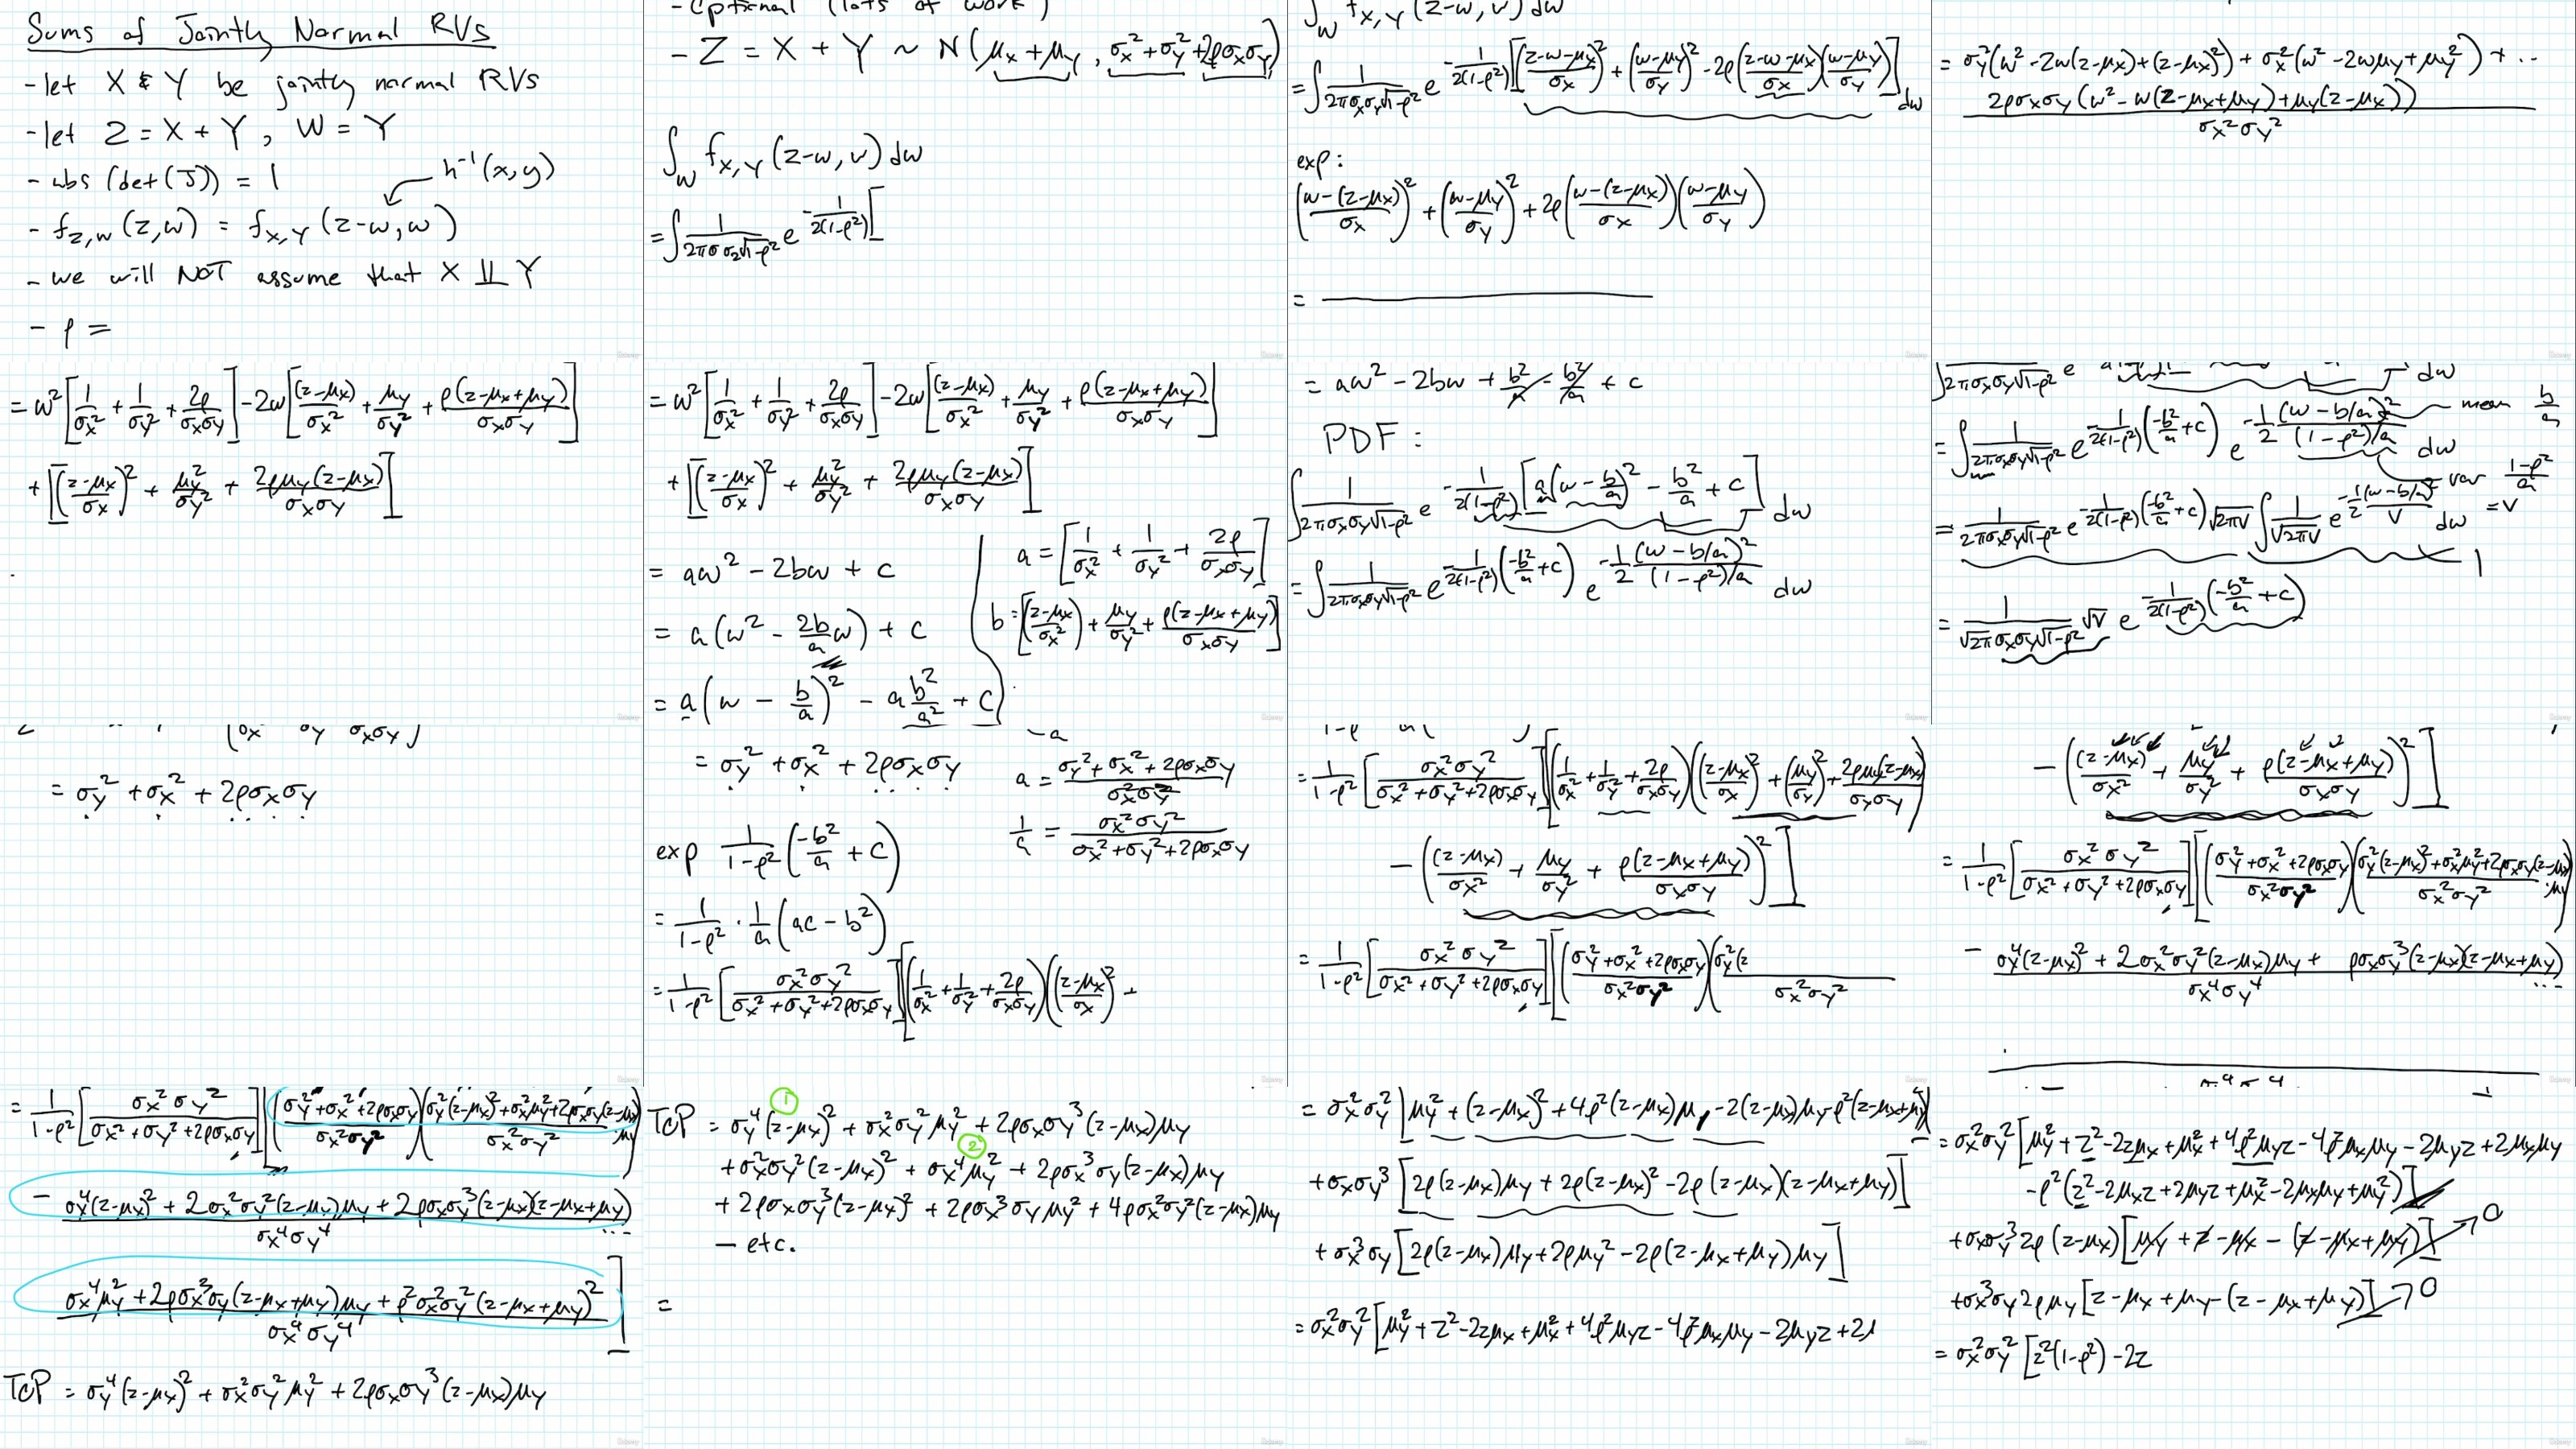 Sums of Jointly Normal RVs
- let X & Y be jointly normal RVs
- let Z = X + Y, W = Y
- abs (det(J)) = 1
h⁻¹(x,y)
- f_{Z,W}(z,w) = f_{X,Y}(z-w,w)
- we will NOT assume that X ⫫ Y
- ρ =
- Optional (lots of work)
- Z = X + Y ~ N(μx + μy, σx² + σy² + 2ρσxσy)
∫_W f_{X,Y}(z-w,w) dw
= ∫ 1/(2πσ σ₂√(1-ρ²)) e^{-1/(2(1-ρ²))[
∫_W f_{X,Y}(z-w,w) dw
= ∫ 1/(2πσxσy√(1-ρ²)) e^{-1/(2(1-ρ²))[((z-w-μx)/σx)² + ((w-μy)/σy)² - 2ρ((z-w-μx)/σx)((w-μy)/σy)]} dw
exp:
((w-(z-μx))/σx)² + ((w-μy)/σy)² + 2ρ((w-(z-μx))/σx)((w-μy)/σy)
=
= σy²(w² - 2w(z-μx) + (z-μx)²) + σx²(w² - 2wμy + μy²) + ...
2ρσxσy(w² - w(z-μx+μy) + μy(z-μx))
σx²σy²
= w²[1/σx² + 1/σy² + 2ρ/(σxσy)] - 2w[(z-μx)/σx² + μy/σy² + ρ(z-μx+μy)/(σxσy)]
+ [((z-μx)/σx)² + μy²/σy² + 2ρμy(z-μx)/(σxσy)]
= w²[1/σx² + 1/σy² + 2ρ/(σxσy)] - 2w[(z-μx)/σx² + μy/σy² + ρ(z-μx+μy)/(σxσy)]
+ [((z-μx)/σx)² + μy²/σy² + 2ρμy(z-μx)/(σxσy)]
= aw² - 2bw + c
a = [1/σx² + 1/σy² + 2ρ/(σxσy)]
= a(w² - (2b/a)w) + c
b = [(z-μx)/σx² + μy/σy² + ρ(z-μx+μy)/(σxσy)]
= a(w - b/a)² - a b²/a² + c
= aw² - 2bw + b²/a - b²/a + c
PDF:
∫ 1/(2πσxσy√(1-ρ²)) e^{-1/(2(1-ρ²))[a(w - b/a)² - b²/a + c]} dw
= ∫ 1/(2πσxσy√(1-ρ²)) e^{-1/(2(1-ρ²))(-b²/a + c)} e^{-1/2 (w - b/a)²/((1-ρ²)/a)} dw
∫ 1/(2πσxσy√(1-ρ²)) e dw
= ∫ 1/(2πσxσy√(1-ρ²)) e^{-1/(2(1-ρ²))(-b²/a + c)} e^{-1/2 (w - b/a)²/((1-ρ²)/a)} dw
mean b/a
var (1-ρ²)/a = V
= 1/(2πσxσy√(1-ρ²)) e^{-1/(2(1-ρ²))(-b²/a + c)} √(2πV) ∫ 1/√(2πV) e^{-1/2 (w-b/a)²/V} dw
1
= 1/(√(2π)σxσy√(1-ρ²)) √V e^{-1/(2(1-ρ²))(-b²/a + c)}
= σy² + σx² + 2ρσxσy
= σy² + σx² + 2ρσxσy
a = (σy² + σx² + 2ρσxσy)/(σx²σy²)
1/a = σx²σy²/(σx² + σy² + 2ρσxσy)
exp 1/(1-ρ²) (-b²/a + c)
= 1/(1-ρ²) · 1/a (ac - b²)
= 1/(1-ρ²) [σx²σy²/(σx² + σy² + 2ρσxσy)][(1/σx² + 1/σy² + 2ρ/(σxσy))(((z-μx)/σx)² +
= 1/(1-ρ²) [σx²σy²/(σx² + σy² + 2ρσxσy)][(1/σx² + 1/σy² + 2ρ/(σxσy))(((z-μx)/σx)² + (μy/σy)² + 2ρμy(z-μx)/(σxσy))
- ((z-μx)/σx² + μy/σy² + ρ(z-μx+μy)/(σxσy))²]
= 1/(1-ρ²) [σx²σy²/(σx² + σy² + 2ρσxσy)][((σy² + σx² + 2ρσxσy)/(σx²σy²))(σy²(z
σx²σy²
- ((z-μx)/σx² + μy/σy² + ρ(z-μx+μy)/(σxσy))²]
= 1/(1-ρ²) [σx²σy²/(σx² + σy² + 2ρσxσy)][((σy² + σx² + 2ρσxσy)/(σx²σy²))((σy²(z-μx)² + σx²μy² + 2ρσxσy(z-μx)μy)/(σx²σy²))
- σy⁴(z-μx)² + 2σx²σy²(z-μx)μy + ρσxσy³(z-μx)(z-μx+μy) ...
σx⁴σy⁴
= 1/(1-ρ²) [σx²σy²/(σx² + σy² + 2ρσxσy)][((σy² + σx² + 2ρσxσy)/(σx²σy²))((σy²(z-μx)² + σx²μy² + 2ρσxσy(z-μx)μy)/(σx²σy²))
- σy⁴(z-μx)² + 2σx²σy²(z-μx)μy + 2ρσxσy³(z-μx)(z-μx+μy) ...
σx⁴σy⁴
σx⁴μy² + 2ρσx³σy(z-μx+μy)μy + ρ²σx²σy²(z-μx+μy)² ]
σx⁴σy⁴
TOP = σy⁴(z-μx)² + σx²σy²μy² + 2ρσxσy³(z-μx)μy
①
TOP = σy⁴(z-μx)² + σx²σy²μy² + 2ρσxσy³(z-μx)μy
②
+ σx²σy²(z-μx)² + σx⁴μy² + 2ρσx³σy(z-μx)μy
+ 2ρσxσy³(z-μx)² + 2ρσx³σyμy² + 4ρσx²σy²(z-μx)μy
- etc.
=
= σx²σy²[μy² + (z-μx)² + 4ρ²(z-μx)μy - 2(z-μx)μy - ρ²(z-μx+μy)²]
+ σxσy³[2ρ(z-μx)μy + 2ρ(z-μx)² - 2ρ(z-μx)(z-μx+μy)]
+ σx³σy[2ρ(z-μx)μy + 2ρμy² - 2ρ(z-μx+μy)μy]
= σx²σy²[μy² + z² - 2zμx + μx² + 4ρ²μyz - 4ρ²μxμy - 2μyz + 2
σ⁴σ⁴
= σx²σy²[μy² + z² - 2zμx + μx² + 4ρ²μyz - 4ρ²μxμy - 2μyz + 2μxμy
- ρ²(z² - 2μxz + 2μyz + μx² - 2μxμy + μy²)]
+ σxσy³2ρ(z-μx)[μy + z - μx - (z-μx+μy)] → 0
+ σx³σy2ρμy[z - μx + μy - (z-μx+μy)] → 0
= σx²σy²[z²(1-ρ²) - 2z